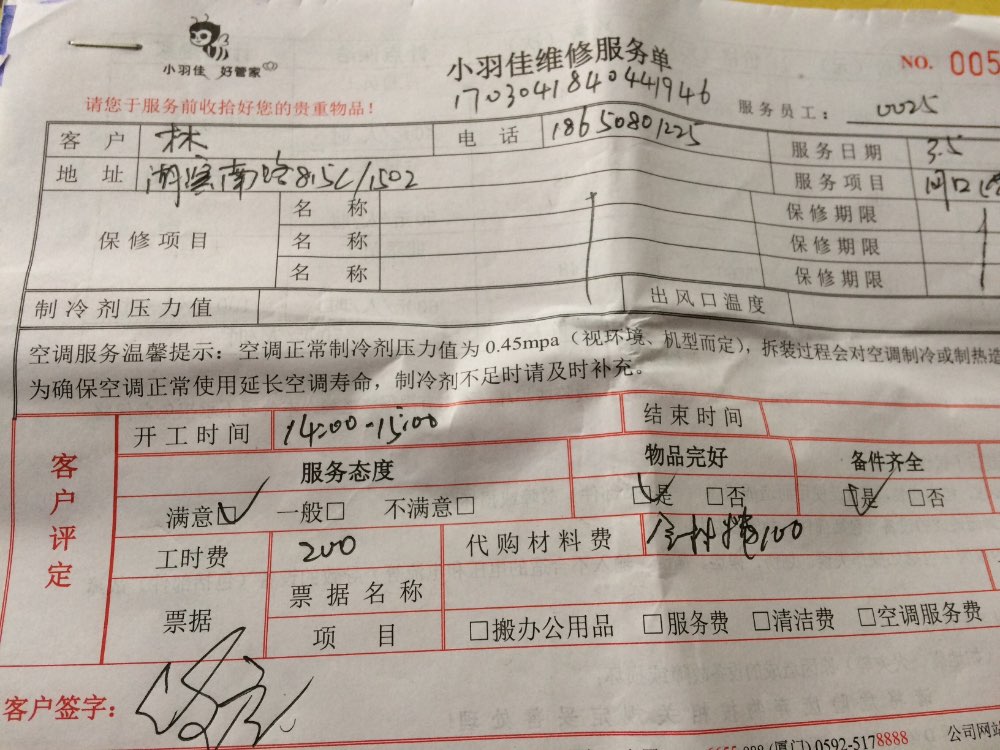 小羽佳 好管家
小羽佳维修服务单
NO. 005
17030418404441946
请您于服务前收拾好您的贵重物品！
服务员工： 0025
客户 林 电话 18650801225 服务日期 3.5
地址 湖滨南路815C/1502 服务项目
保修项目 名称 保修期限
名称 保修期限
名称 保修期限
制冷剂压力值 出风口温度
空调服务温馨提示：空调正常制冷剂压力值为 0.45mpa（视环境、机型而定），拆装过程会对空调制冷或制热造
为确保空调正常使用延长空调寿命，制冷剂不足时请及时补充。
客户评定
开工时间 14:00-15:00 结束时间
服务态度 物品完好 备件齐全
满意☑ 一般□ 不满意□ ☑是 □否 ☑是 □否
工时费 200 代购材料费 100
票据 票据名称
项目 □搬办公用品 □服务费 □清洁费 □空调服务费
客户签字：
(厦门) 0592-5178888 公司网站